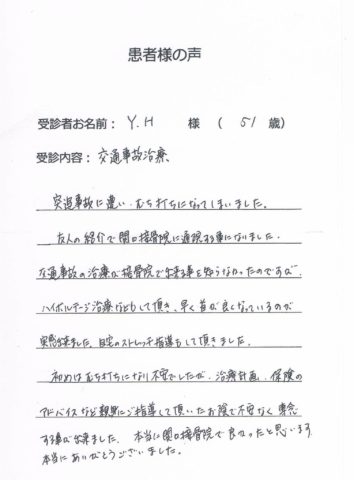 患者様の声
受診者お名前： Y.H 様 （ 51 歳）
受診内容： 交通事故治療、
突追事故に遭い、むち打ちになってしまいました。
友人の紹介で関口接骨院に通院する事になりました。
交通事故の治療が接骨院で出来る事を知らなかったのですが、
ハイボルテージ治療などもして頂き、早く首が良くなっているのが
実感出来ました。自宅のストレッチ指導もして頂きました。
初めはむち打ちになり不安でしたが、治療計画、保険の
アドバイスなど親切にご指導して頂いたお陰で不安なく専念
する事が出来ました。本当に関口接骨院で良かったと思います。
本当にありがとうございました。